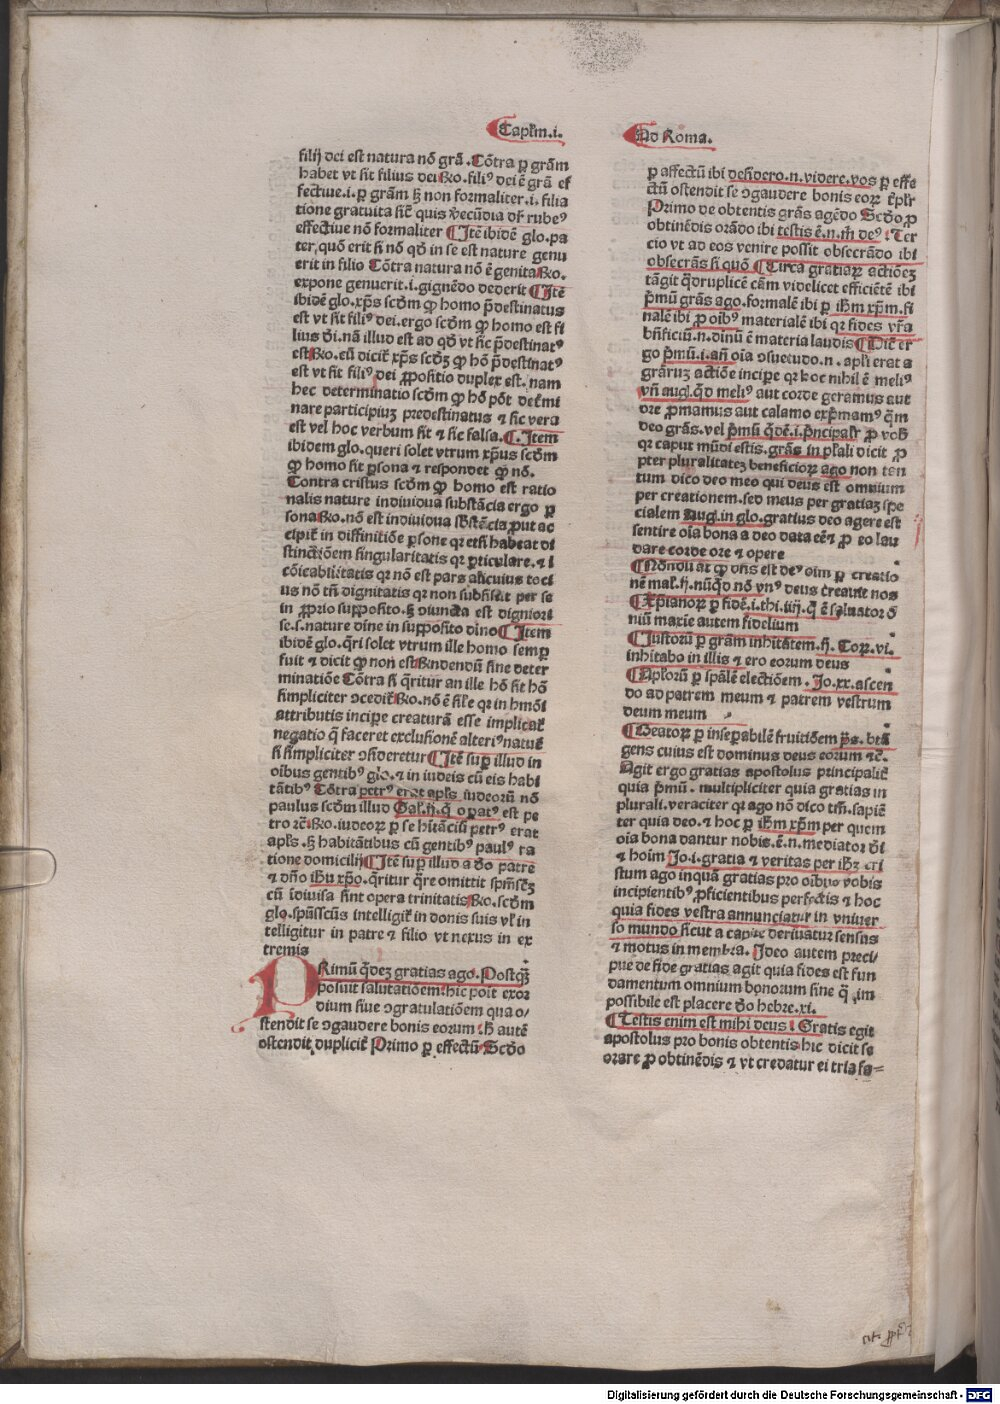 Capłm.i.
filij dei est natura nō grā.Cōtra ꝑ grām
habet vt sit filius dei Ro.filiꝰ dei ē grā ef
fectiue.i.ꝑ grām ꝫ non formaliter.i.filia
tione gratuita
effectiue nō formaliter Itē ibidē glo.pa
ter,quō erit si nō qđ in se est nature genu
erit in filio Cōtra natura nō ē genita Ro.
expone genuerit.i.gignēdo dederit Itē
ibidē glo.xp̄s scđm ꝙ homo p̄destinatus
est vt sit filiꝰ dei.ergo scđm ꝙ homo est fi
lius đi.nā illud est ad qđ vt sic p̄destinatꝰ
est Ro.eū dicit̄ xp̄s scđꝫ ꝙ hō p̄destinatꝰ
est vt sit filiꝰ dei ꝓpositio duplex est.nam
hec determinatio scđm ꝙ hō pōt determi
nare participiuꝫ predestinatus ⁊ sic vera
est vel hoc verbum sit ⁊ sic falsa. Item
ibidem glo.queri solet vtrum xp̄us scđm
ꝙ homo sit ꝑsona ⁊ respondet ꝙ nō.
Contra cristus scđm ꝙ homo est ratio
nalis nature indiuidua substācia ergo ꝑ
sona Ro.nō est indiuidua sbstēcia ꝓut ac
cipit̄ in diffinitiōe ꝑsone qꝛ etsi habeat di
stinctiōem singularitatis qꝛ ꝑticulare.⁊ i
cōicabilitatis qꝛ nō est pars alicuius toci
us nō tn̄ dignitatis qꝛ non subsistit per se
in ꝓprio supposito.ꝫ ꝯiuncta est digniori
se.s.nature diīne in supposito diīno Item
ibidē glo.q̄ri solet vtrum ille homo semꝑ
fuit ⁊ dicit ꝙ non est Rn̄dendū sine deter
minatiōe Cōtra si q̄ritur an ille hō sit hō
simpliciter ꝯcedit̄ Ro.nō ē sił̄e qꝛ in hmōi
attributis incipe creaturā esse implicat̄
negatio q̄ faceret exclusionē alteriꝰ nature
si simpliciter ꝯsideretur Itē suꝑ illud in
oībus gentibꝰ glo.⁊ in iudeis cū eis habi
tātibꝰ Cōtra petrꝰ erat apl̄s iudeorū nō
paulus scđm illud Gal̄.ij.q̄ opatꝰ est pe
tro ꝛc̄ Ro.iudeoꝝ ꝑ se hitāciū petrꝰ erat
apl̄s.ꝫ habitātibus cū gentibꝰ paulꝰ ra
tione domicilij Itē suꝑ illud a đo patre
⁊ dn̄o ihū xp̄o.q̄ritur q̄re omittit spm̄scm̄
cū īdiuisa sint opera trinitatis Ro.scđm
glo.spūs̄scūs intelligit̄ in donis suis vl̄ in
telligitur in patre ⁊ filio vt nexus in ex
tremis
PRimū q̄deꝫ gratias ago.Postq̄ꝫ
posuit salutatiōem hic poīt exor
dium siue ꝯgratulatiōem qua o/
stendit se ꝯgaudere bonis eorum:h̄ autē
ostendit duplicit̄ Primo ꝑ effectū Scđo
Ad Roma.
ꝑ affectū ibi desidero.n.videre.vos ꝑ effe
ctū ostendit se ꝯgaudere bonis eoꝝ
Primo de obtentis grās agēdo Scđo ꝓ
obtinēdis orādo ibi testis ē.n.m̄ deꝰ Ter
cio vt ad eos venire possit obsecrādo ibi
obsecrās si quō Circa gratiaꝝ actiōeꝫ
tāgit q̄druplicē cām videlicet efficiētē ibi
p̄mū grās ago.formalē ibi ꝑ ihm̄ xp̄m.fi
nalē ibi ꝓ oībꝰ materialē ibi qꝛ fides vr̄a
bn̄ficiū.n.diīnū ē materia laudis Dicit er
go p̄mū.i.añ oīa ꝯsuetudo.n.apl̄i erat a
grārū actiōe incipe qꝛ hoc nihil ē meliꝰ
vn̄ aug.qđ meliꝰ aut corde geramus aut
ore ꝓmamus aut calamo exp̄mamꝰ q̄m
deo grās.vel p̄mū q̄dē.i.p̄ncipalr̄ ꝓ vob
qꝛ caput mūdi estis.grās in pl̄ali dicit ꝓ
pter pluralitateꝫ beneficioꝝ ago non tan
tum dico deo meo qui deus est omnium
per creationem.sed meus per gratiaꝫ spe
cialem Aug.in glo.gratius deo agere est
sentire oīa bona a deo data eē ⁊ ꝓ eo lau
dare corde ore ⁊ opere
Nondū at ꝙ vn̄s est deꝰ oīm ꝑ creatio
nē mal̄.ij.nūqđ nō vnꝰ deus creauit nos
Xp̄ianoꝝ ꝑ fidē.i.thi.iiij.q̄ ē saluator ō
niū maxie autem fidelium
Iustorū ꝑ grām inhitātem.ij.Coꝝ.vi.
inhitabo in illis ⁊ ero eorum deus
Apl̄orū ꝑ spālē electiōem.Jo.xx.ascen
do ad patrem meum ⁊ patrem vestrum
deum meum
Beatoꝝ ꝑ inseꝑabilē fruitiōem p̄s.btā
gens cuius est dominus deus eorum ⁊c̄.
Agit ergo gratias apostolus principalit̄
quia p̄mū. multipliciter quia gratias in
plurali.veraciter qꝛ ago nō dico tm̄.sapiē
ter quia deo.⁊ hoc ꝑ ihm̄ xp̄m per quem
oīa bona dantur nobis.ē.n.mediator đi
⁊ hoīm Jo.i.gratia ⁊ veritas per ihꝫ cri
stum ago inquā gratias pro oībus vobis
incipientibꝰ ꝓficientibus perfectis ⁊ hoc
quia fides vestra annunciatur in vniuer
so mundo sicut a capite deriuatur sensus
⁊ motus in membra. Ideo autem preci/
pue de fide gratias agit quia fides est fun
damentum omnium bonorum sine q̄ im
possibile est placere đo hebre.xi.
Testis enim est mihi deus: Gratis egit
apostolus pro bonis obtentis hic dicit se
orare ꝓ obtinēdis ⁊ vt credatur ei tria fa=
Digitalisierung gefördert durch die Deutsche Forschungsgemeinschaft - DFG